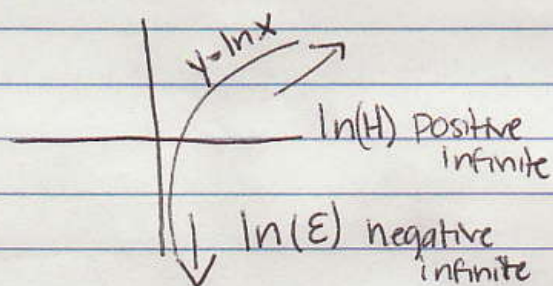 y=lnx
ln(H) positive
infinite
ln(ε) negative
infinite